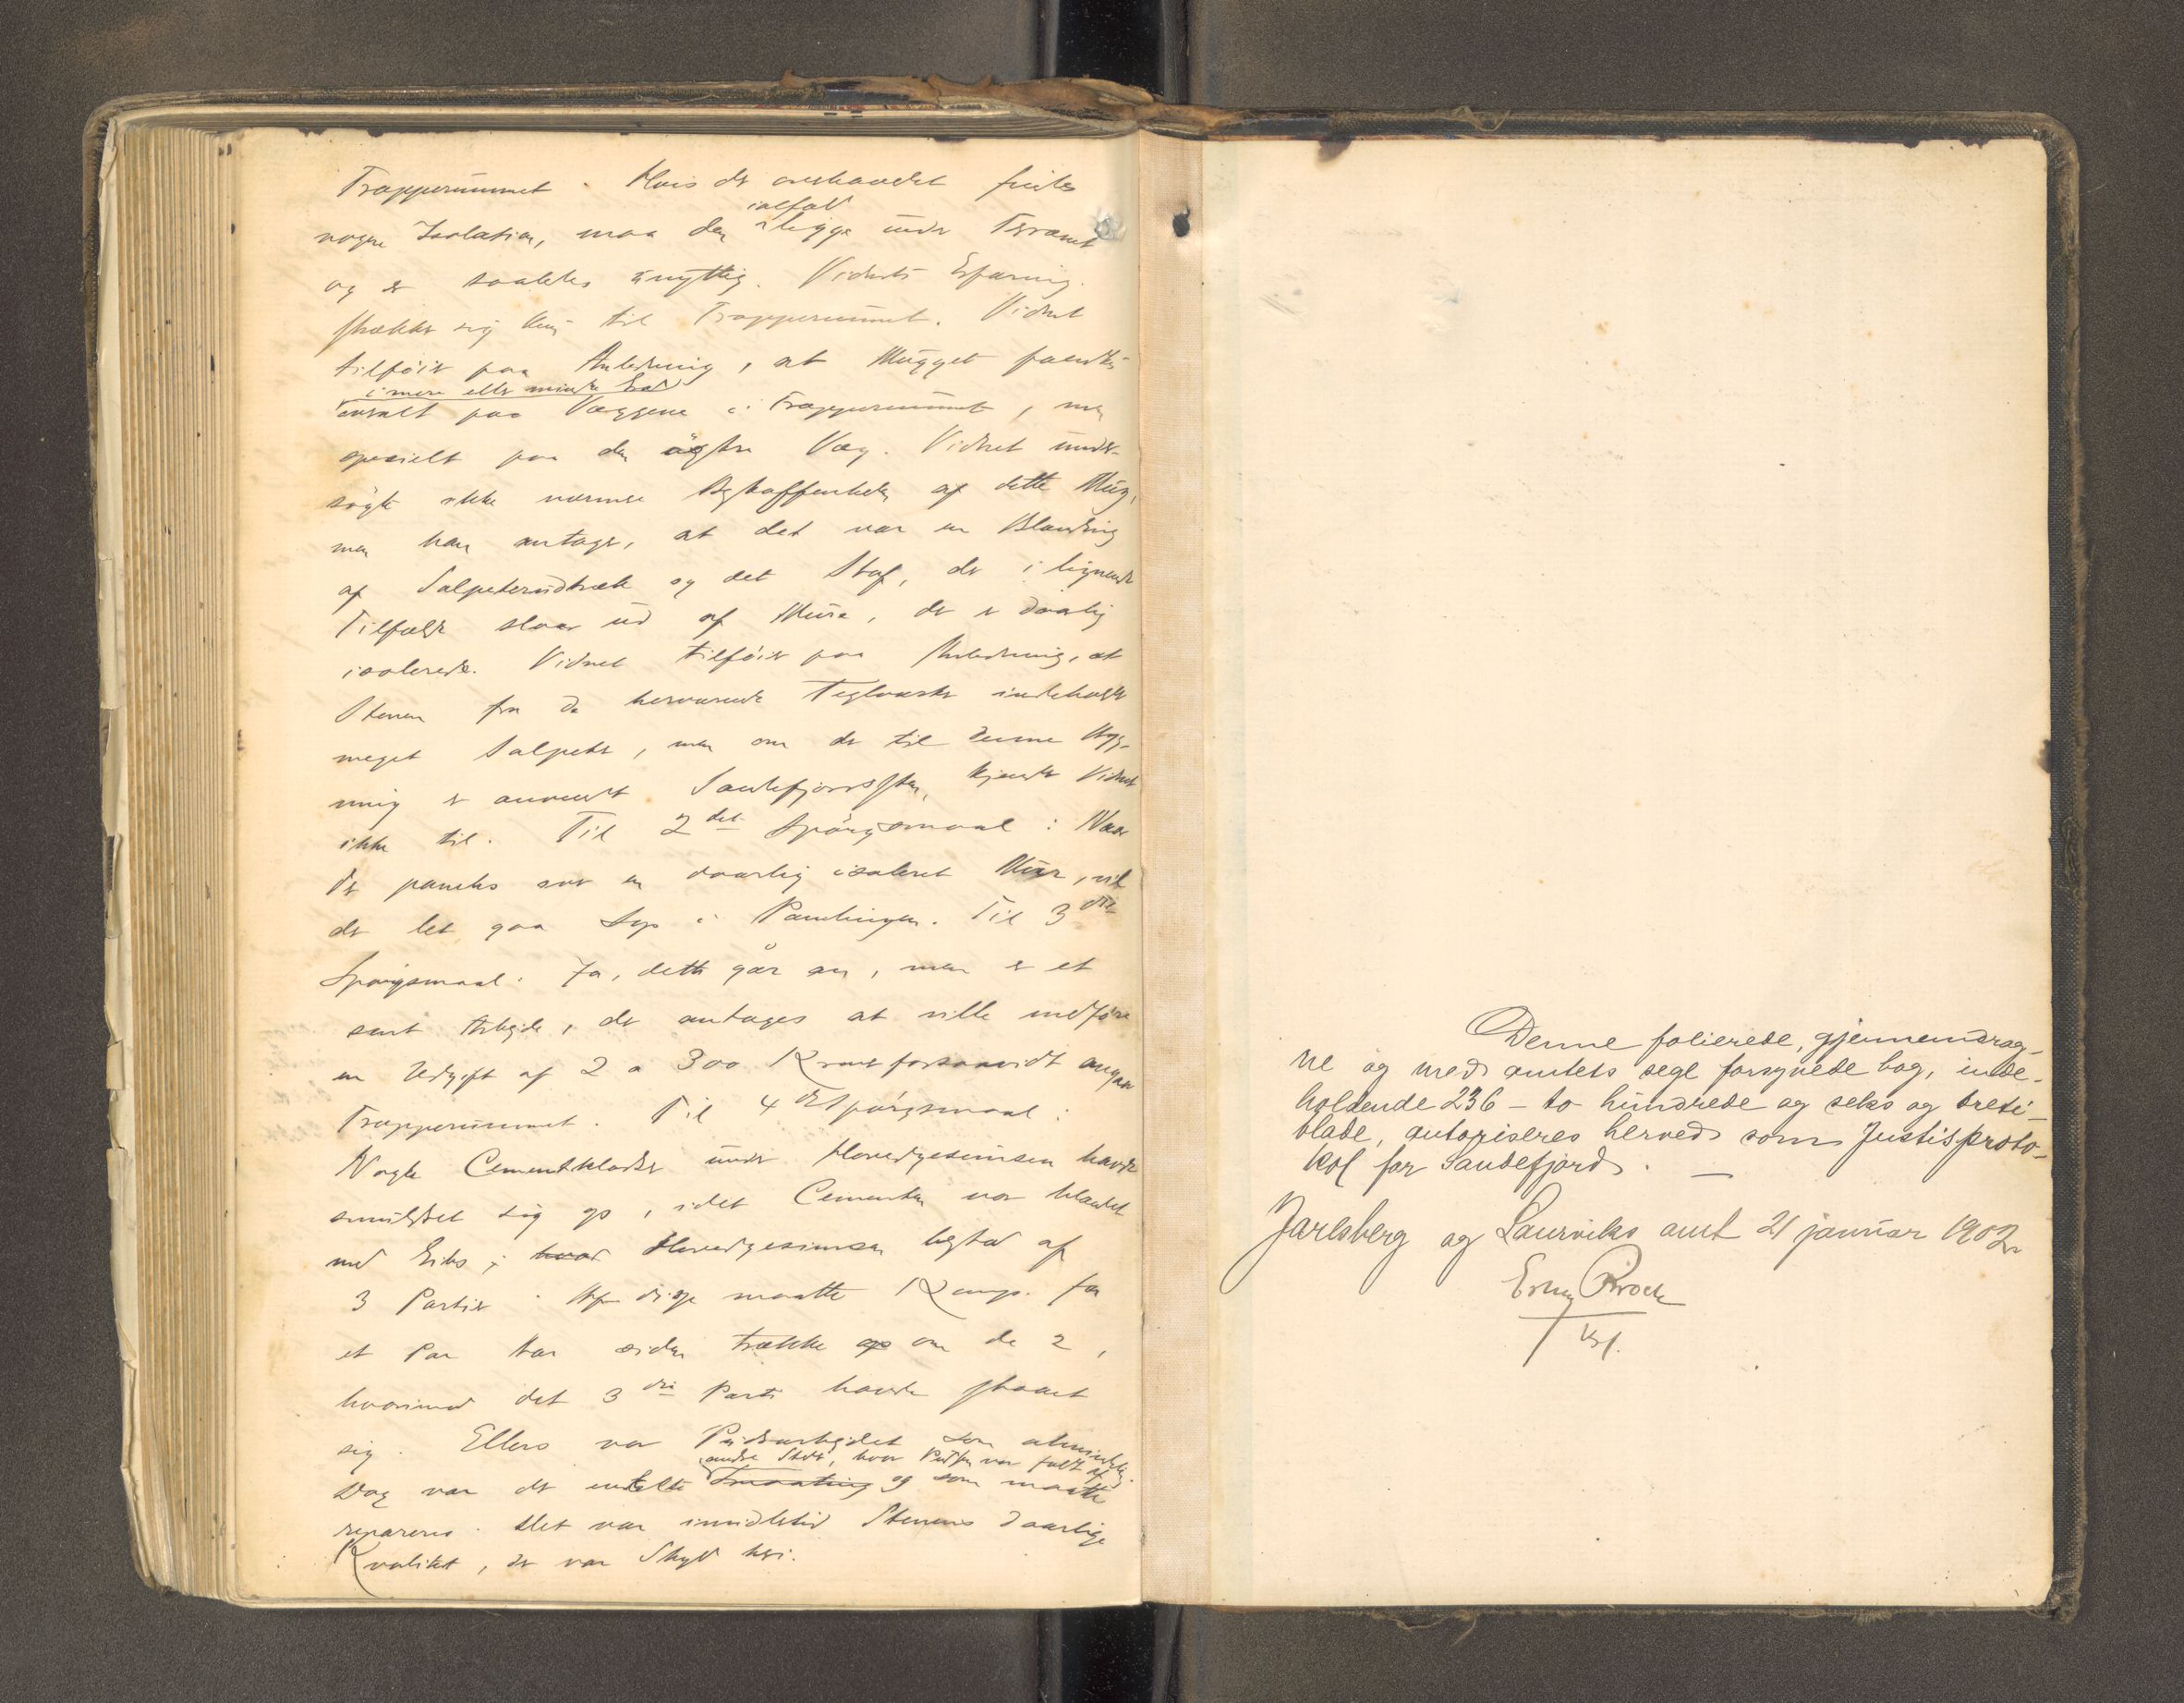 Trapperummet. Hvis der overhovedet findes
ialfald
nogen Isolation, maa den ligge under Terrænet
og er saaledes unyttig. Vidnets Erfaring
strækker sig kun til Trapperummet. Vidnet
tilføier paa Anledning, at Mugget fandtes
i mere eller mindre Grad
overalt paa Væggene i Trapperummet, men
specielt paa den øgstre Væg. Vidnet under-
søgte ikke nærmere Beskaffenheden af dette Mug,
men han antager, at det var en Blanding
af Salpeterudtræk og det Stof, der i lignende
Tilfælde slaar ud af Mure, der er daarlig
isolerede. Vidnet tilføier paa Anledning, at
Stenen fra de herværende Teglværker indeholder
meget Salpeter, men om der til denne Byg-
ning er anvendt Sandefjordssten, kjender Vidnet
ikke til. Til 2det Spørgsmaal: Naar
der pandles over en daarlig isoleret Mur, vil
der let gaa Sop i Pandlingen. Til 3die
Spørgsmaal: Ja, dette går an, men er et
sent Arbeide, der antages at ville medføre
en Udgift af 2 a 300 Kroner forsaavidt angaar
Trapperummet. Til 4de Spørgsmaal:
Nogle Cementklodser under Hovedgesimsen havde
smuldret sig op, idet Cementen var blandet
med Gibs; hvad Hovedgesimsen bestod af
3 Partier. Af disse maatte Komp. for
et Par Aar siden trække op om de 2,
hvorimod det 3die Parti havde staaet
sig. Ellers var Pudsarbeidet som almindelig.
andre Steder, hvor Pudsen var faldt af
Dog var der enkelte Smaating og som maatte
repareres. Det var imidlertid Stenens daarlige
Kvalitet, der var Skyld heri.
Denne folierede, gjennemdrag-
ne og med amtets segl forsynede bog, inde-
holdende 236 – to hundrede og seks og treti –
blade, autoriseres herved som Justisproto-
kol for Sandefjord. —
Jarlsberg og Laurviks amt 21 januar 1902